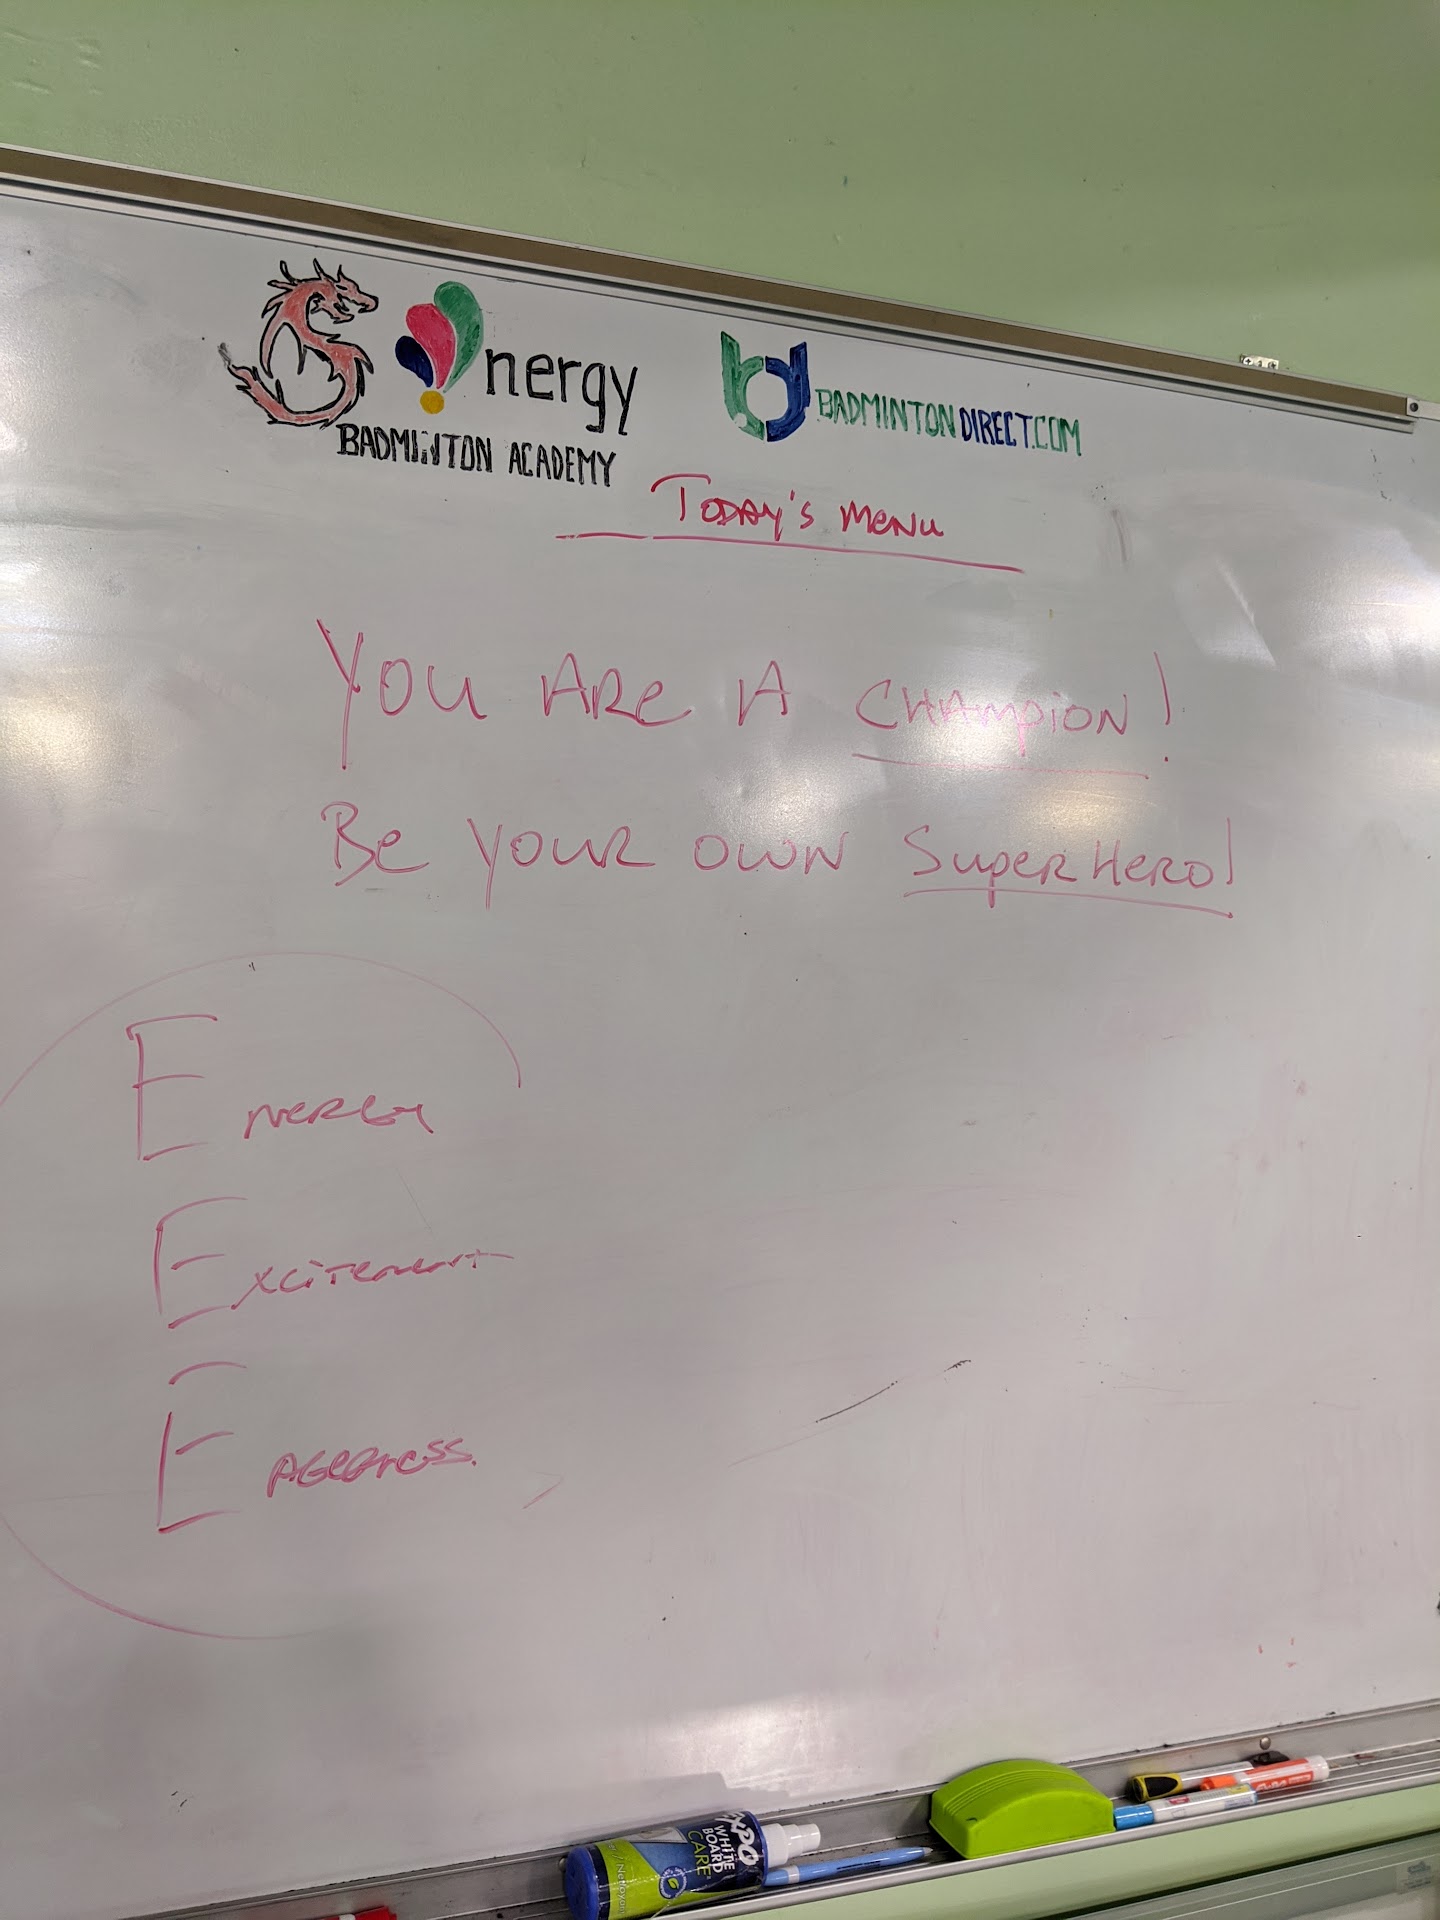 nergy
BADMINTON ACADEMY
bd BADMINTONDIRECT.COM
TODAY'S MENU
YOU ARE A CHAMPION!
BE YOUR OWN SUPERHERO!
ENERGY
EXCITEMENT
EAGERNESS.
EXPO
WHITE
BOARD
CARE